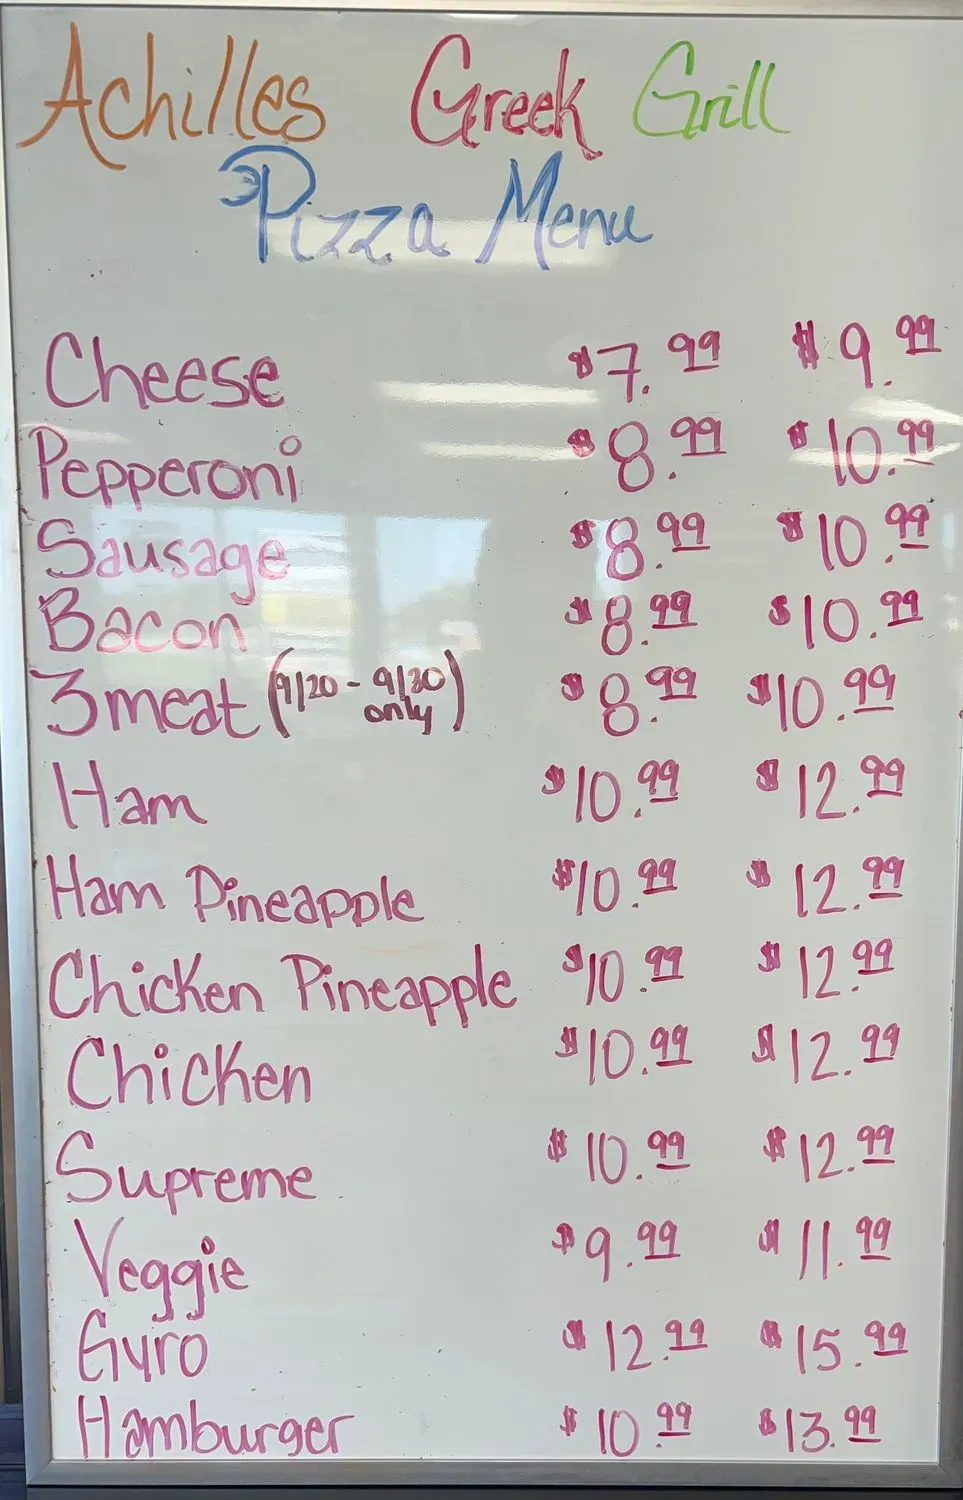 Achilles Greek Grill
Pizza Menu
Cheese $7.99 $9.99
Pepperoni $8.99 $10.99
Sausage $8.99 $10.99
Bacon $8.99 $10.99
3 meat (9/20 - 9/30 only) $8.99 $10.99
Ham $10.99 $12.99
Ham Pineapple $10.99 $12.99
Chicken Pineapple $10.99 $12.99
Chicken $10.99 $12.99
Supreme $10.99 $12.99
Veggie $9.99 $11.99
Gyro $12.99 $15.99
Hamburger $10.99 $13.99